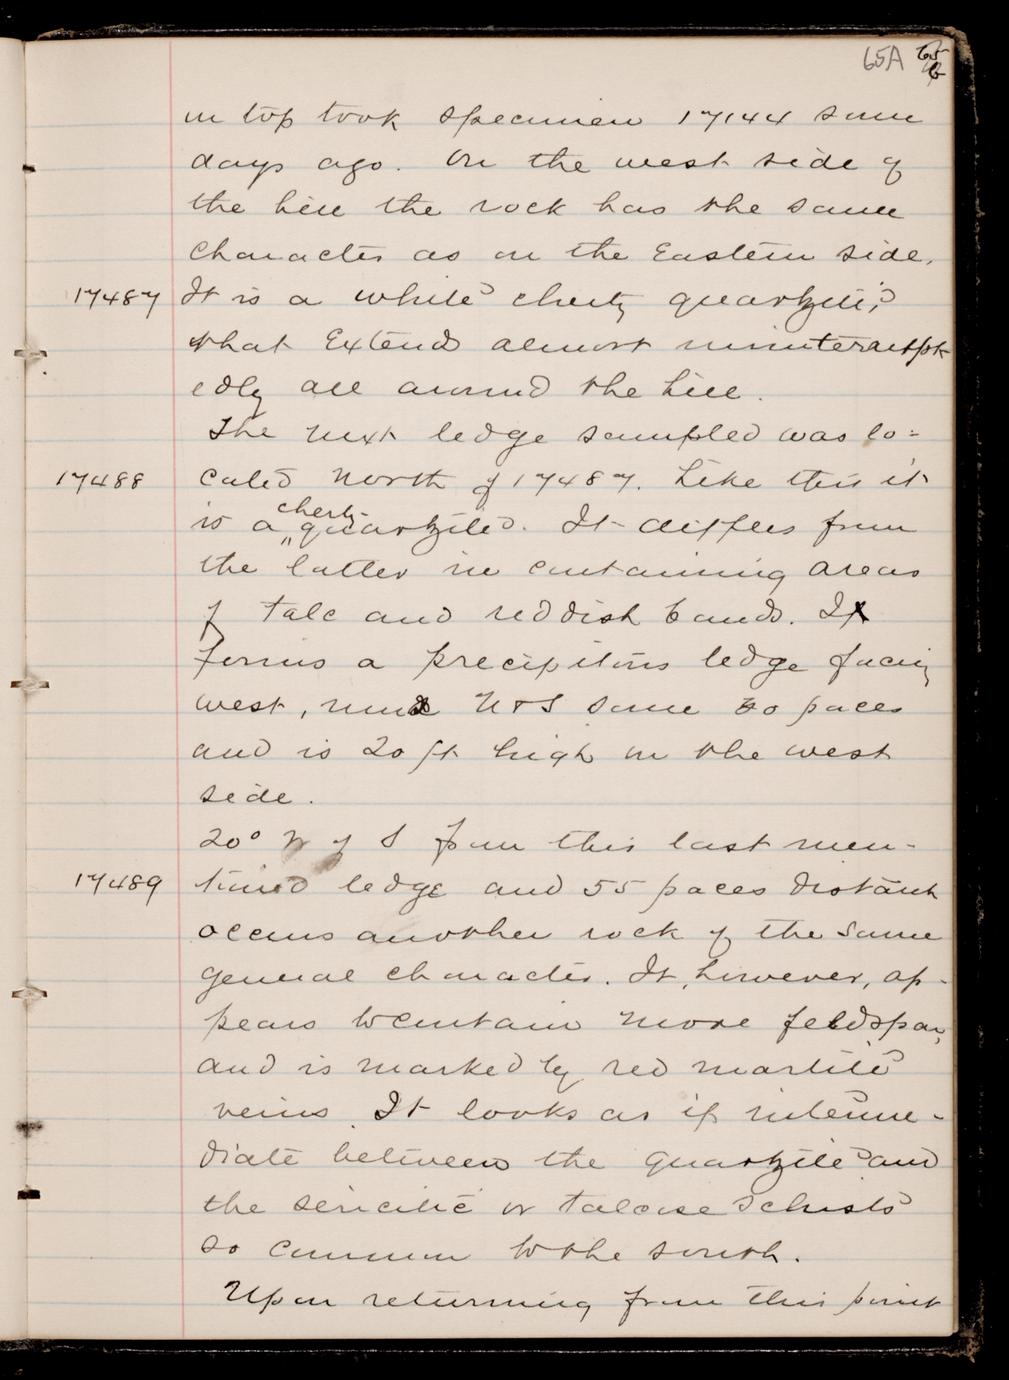 65A 65
in top took specimen 17144 some
days ago. On the west side of
the hill the rock has the same
character as on the Eastern side.
17487 It is a white cherty quartzite,
that Extends almost uninterrupt
edly all around the hill.
The next ledge sampled was lo-
17488 cated North of 17487. Like this it
cherty
is a quartzite. It differs from
the latter in containing areas
of talc and reddish bands. It
forms a precipitous ledge facing
west, runs N & S some paces
and is 20 ft high on the west
side.
20° W of S from this last men-
17489 tioned ledge and 55 paces distant
occurs another rock of the same
general character. It, however, ap-
pears to contain more feldspar,
and is marked by red martite
veins. It looks as if interme-
diate between the quartzite and
the sericitic or talcose schists
so common to the south.
Upon returning from this point